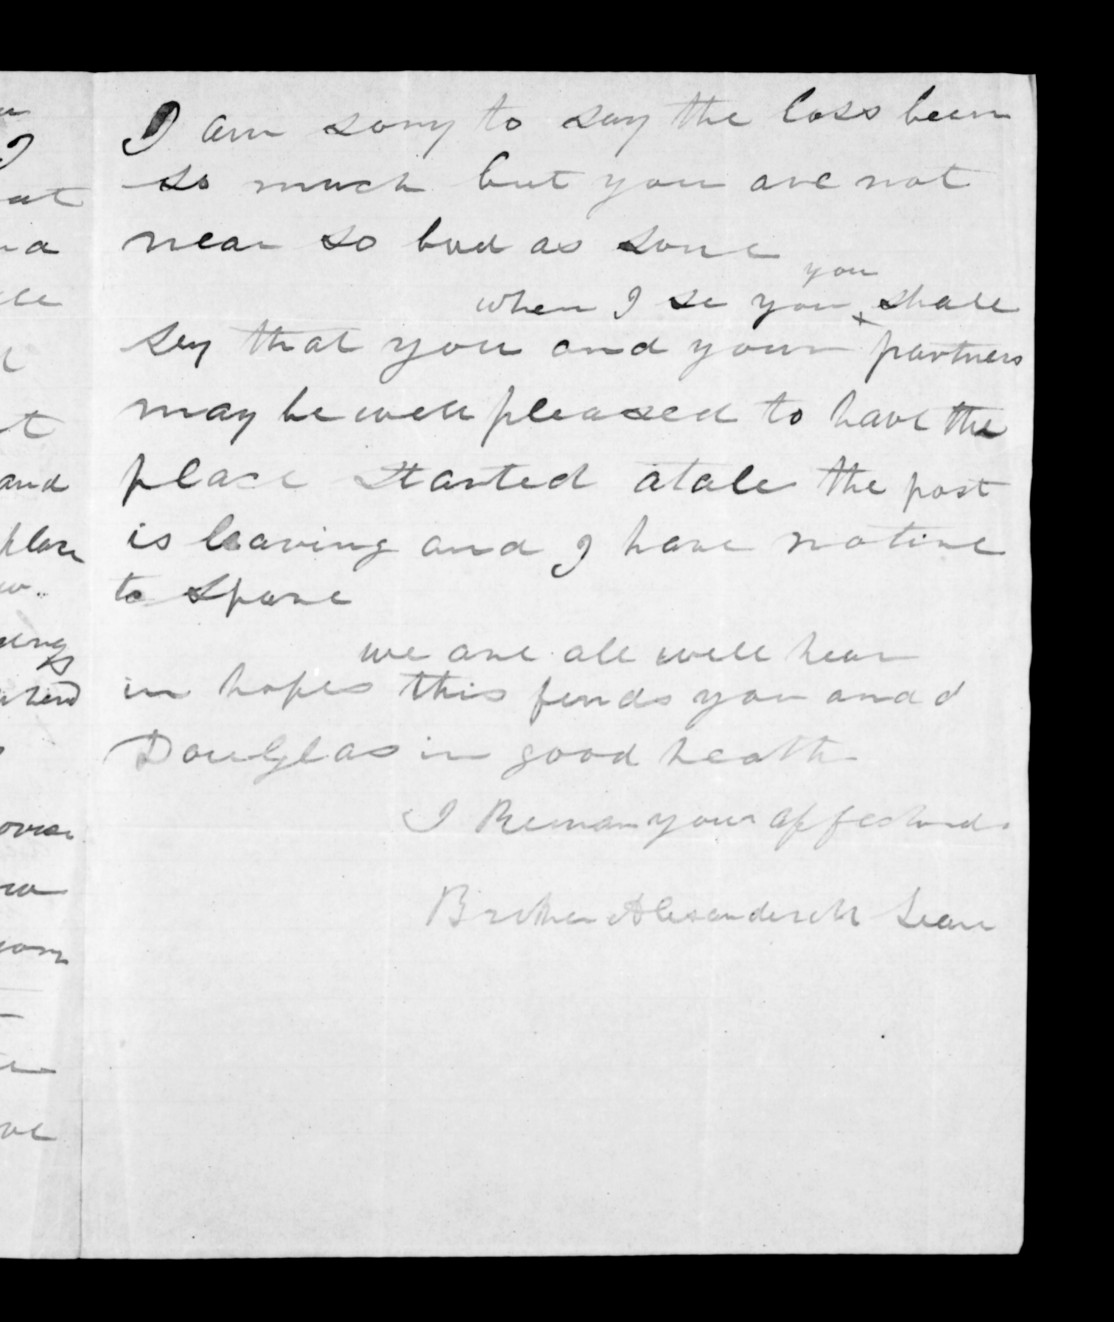 I am sory to say the loss been
so much but you are not
near so bad as some
you
when I se you shall
sey that you and your partners
may be well pleased to have the
place started atale the post
is leaving and I have notime
to spare
we are all well hear
in hopes this finds you anad
Douglas in good heath
I Reman your
Brother Alexander Mc Lean
at
and